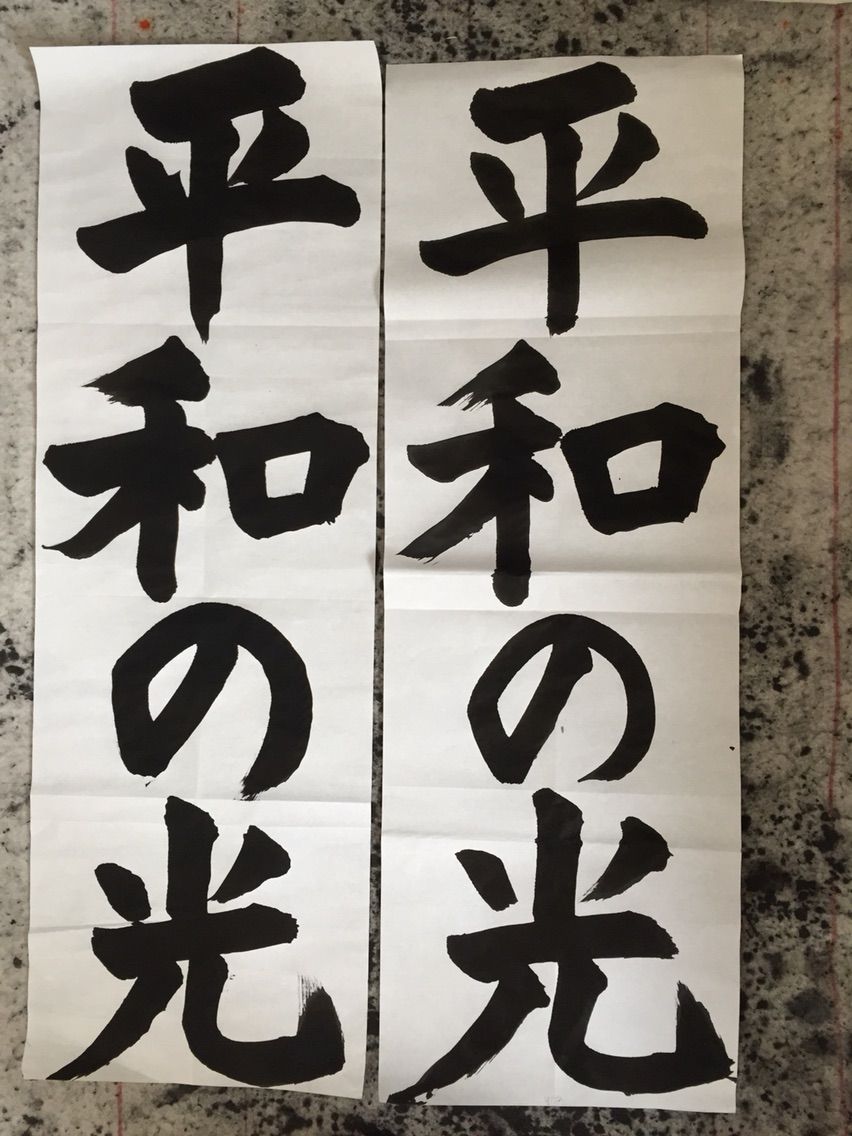 平和の光
平和の光